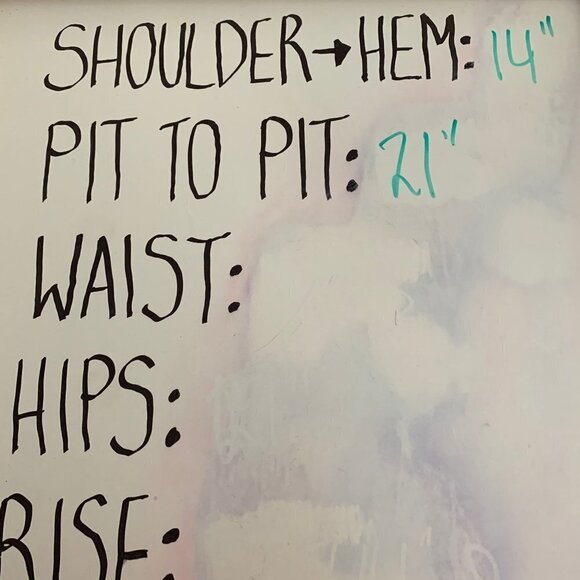 SHOULDER→HEM: 14"
PIT TO PIT: 21"
WAIST:
HIPS:
RISE: